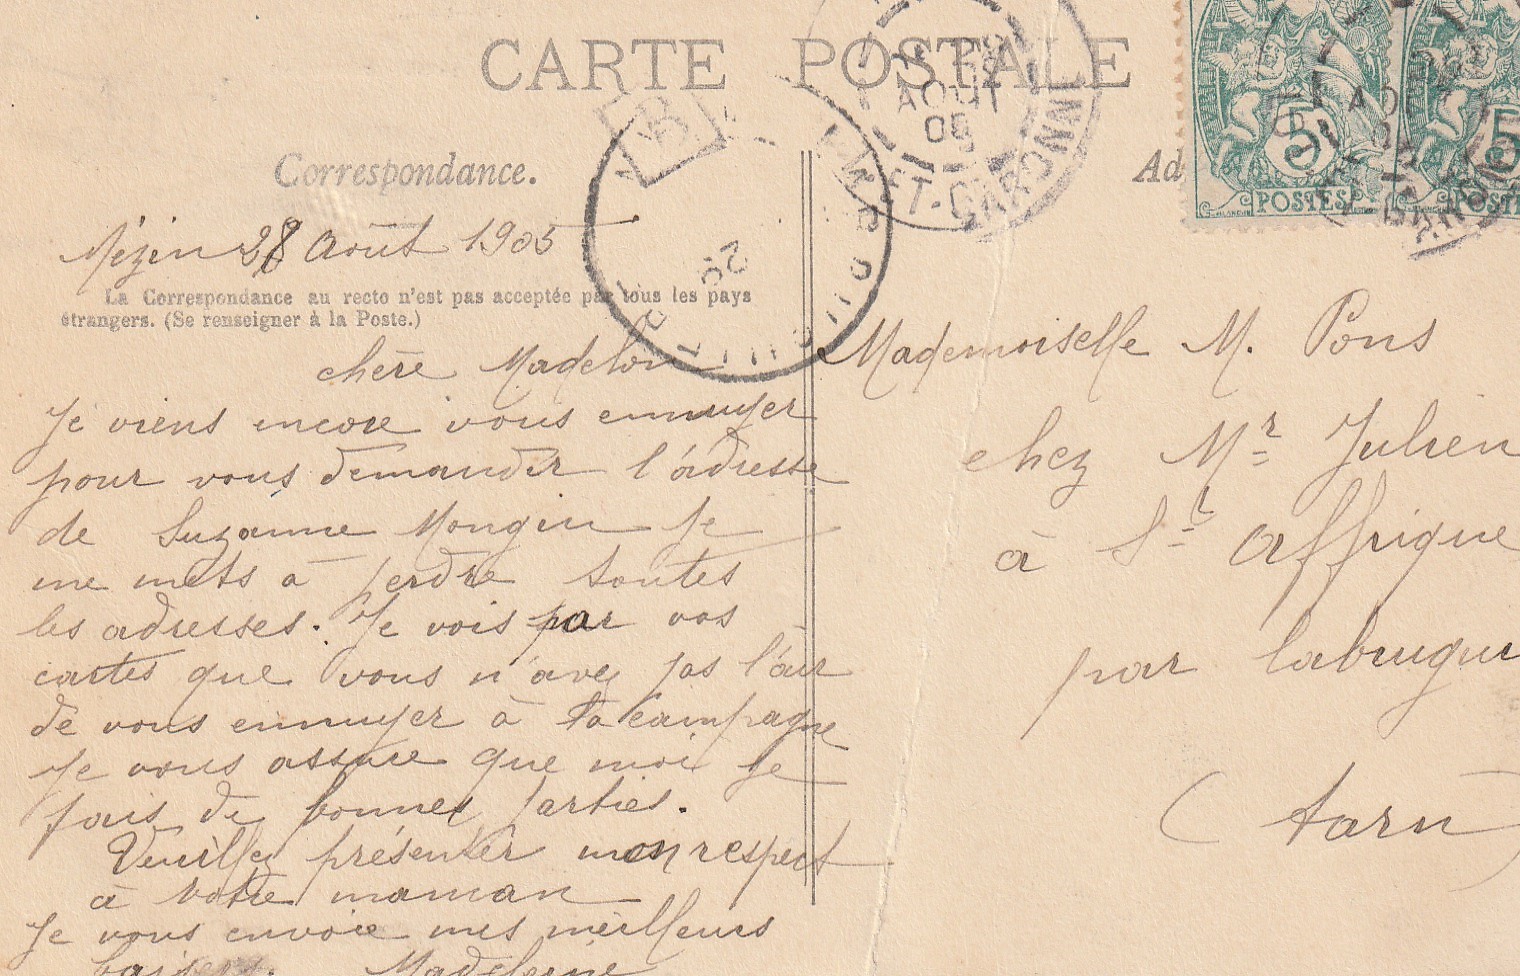 CARTE POSTALE
Correspondance.
Mézin 28 Août 1905
La Correspondance au recto n'est pas acceptée par tous les pays
étrangers. (Se renseigner à la Poste.)
chère Madelon
Je viens encore vous ennuyer
pour vous demander l'adresse
de Suzanne Mongin je
me mets à perdre toutes
les adresses. Je vois par vos
cartes que vous n'avez pas l'air
de vous ennuyer à la campagne
Je vous assure que moi je
fais de bonnes parties.
Veuillez présenter mon respect
à votre maman
Je vous envoie mes meilleurs
baisers. Madeleine
Ad
Mademoiselle M. Pons
chez Mr Julien
à St Affrique
par labrugui
(tarn)
5
POSTES
5
POSTES
AOUT
05
ET-GARONNE
AOUT
GARON
LABRUGUI